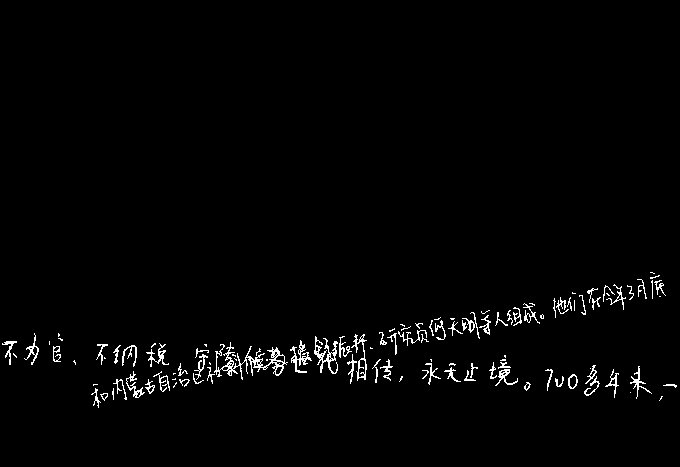 不为官、不纳税、守陵 相传，永无止境。700多年来，一
和内蒙古自治区 研究员何天明等人组成。他们在今年3月底